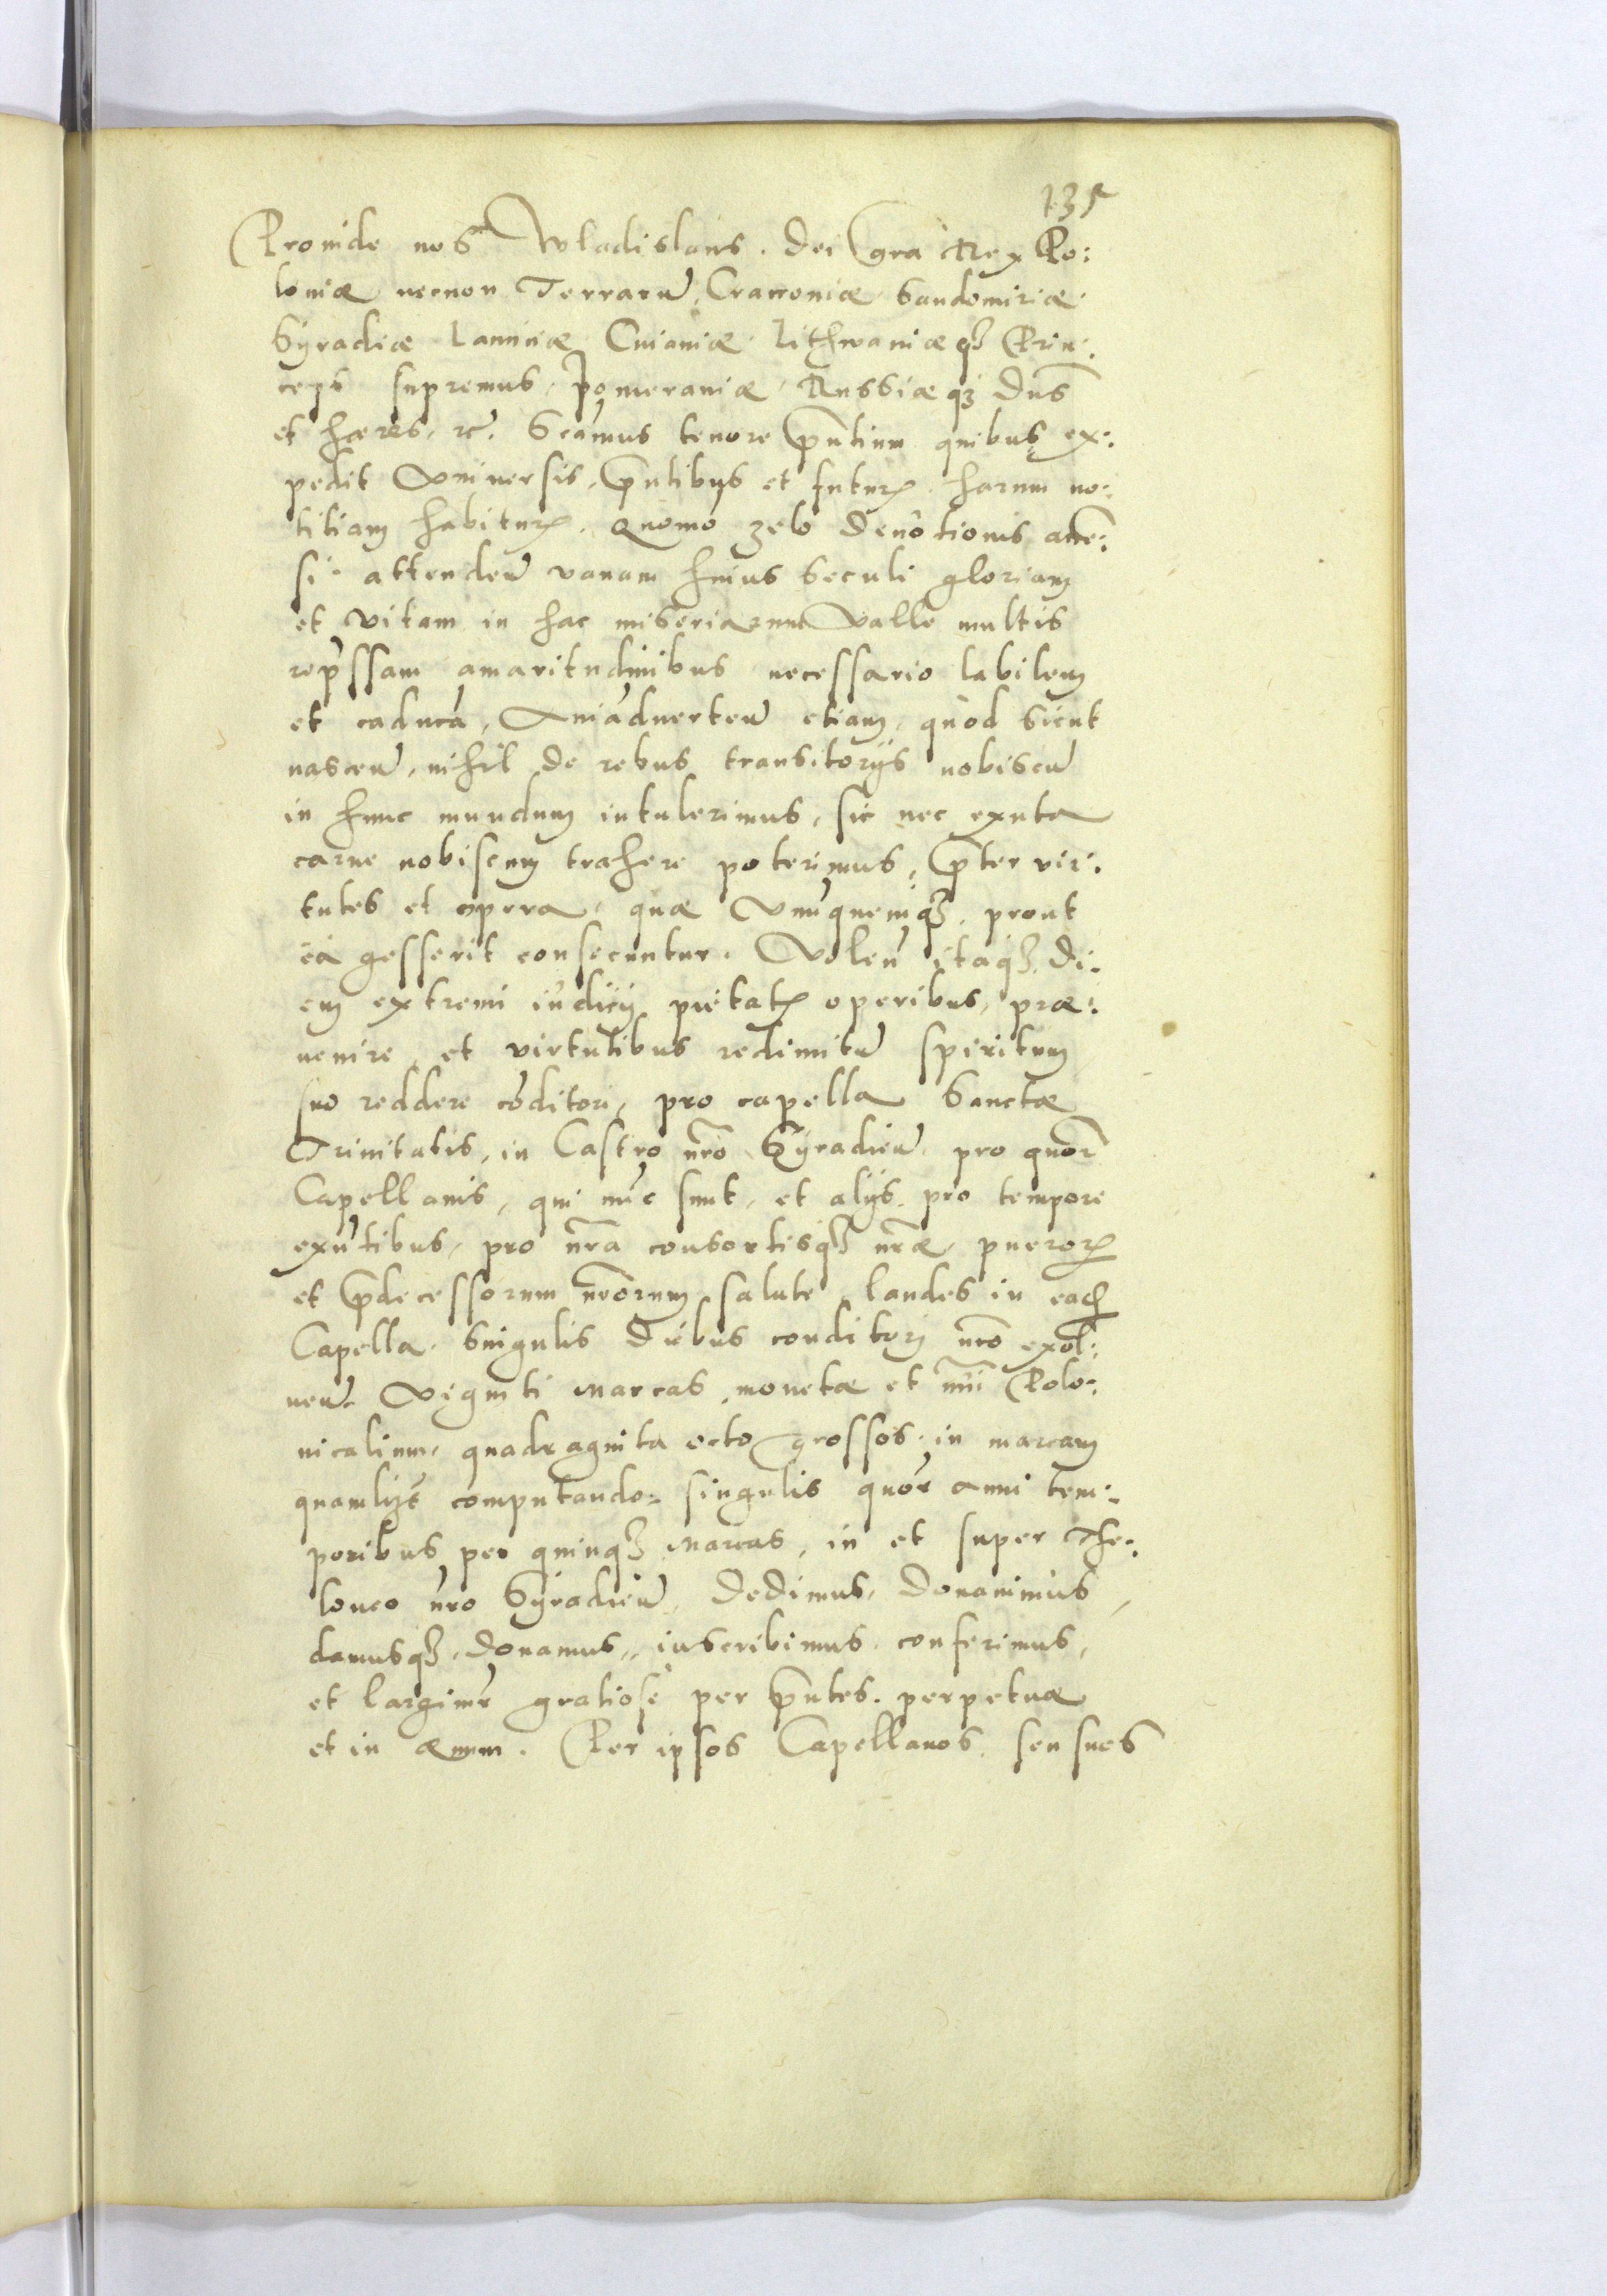 135
Prouide nos Wladislaus. Dei gra Rex Po:
loniæ necnon Terraru Cracouiæ Sandomiriæ
Syradiæ Lanciciæ Cuiauiæ Lithwaniæq3 Prin:
ceps supremus, Pomeraniæ, Russiæq3 Dns
et hæres, rc. Scamus tenore pntium quibus ex:
pedit Vniuersis, pntibus et futur. harum no:
titiam habitur. Quomo zelo deuotionis accē:
si. attenden vanam huius seculi gloriam
et vitam in hac miseriarum Valle multis
repssam amaritudinibus necessario labilem
et caducā, Aniaduerten etiam, quod sicut
nascen, nihil de rebus transitorijs nobiscu
in hunc mundum intulerimus, sic nec exuta
carne nobiscum trahere poterimus, pter vir:
tutes et opera, quæ Vnuquemq3, prout
ea gesserit consecuntur. Volen itaq3 di:
em extremi iudicij pietat operibus, præ:
uenire, et virtutibus redimitu spiritum
suo reddere cōditori, pro capella Sanctæ
Trinitatis, in Castro nrō Syradien pro quor
Capellanis, qui nūc sunt, et alijs pro tempore
exntibus, pro nrā consortisq3 nræ, pueror
et pdecessorum nrōrum salute, laudes in ead
Capella singulis diebus conditori nrō exol:
uen. Viginti Marcas, monetæ et nūi Polo:
nicalium, quadraginta octo grossos in marcam
quamlizt computando: singulis quor anni tem:
poribus per quinq3 Marcas, in et super The:
loneo nro Syradien, Dedimus, Donauimus,
damusq3, Donamus, inscribimus, conferimus,
et largimr gratiose per pntes. perpetuæ
et in æuum. Per ipsos Capellanos seu sues